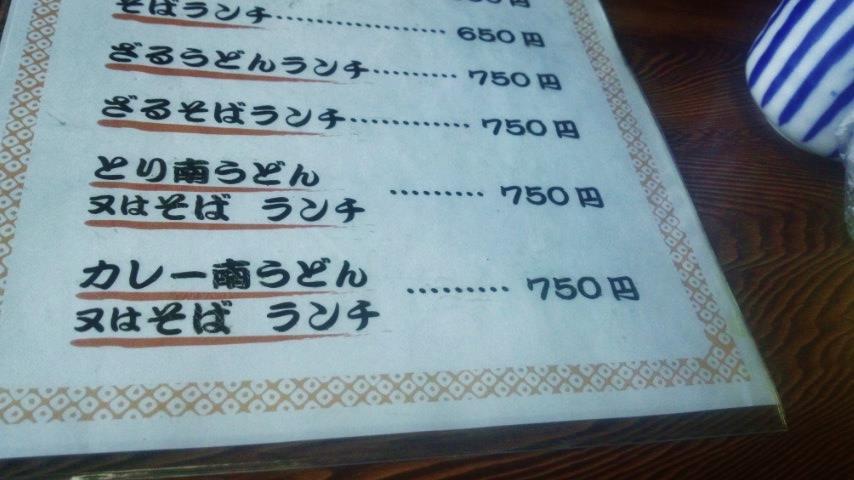 そばランチ…………………… 650円
ざるうどんランチ………… 750円
ざるそばランチ…………… 750円
とり南うどん
又はそば ランチ ……… 750円
カレー南うどん
又はそば ランチ ……… 750円